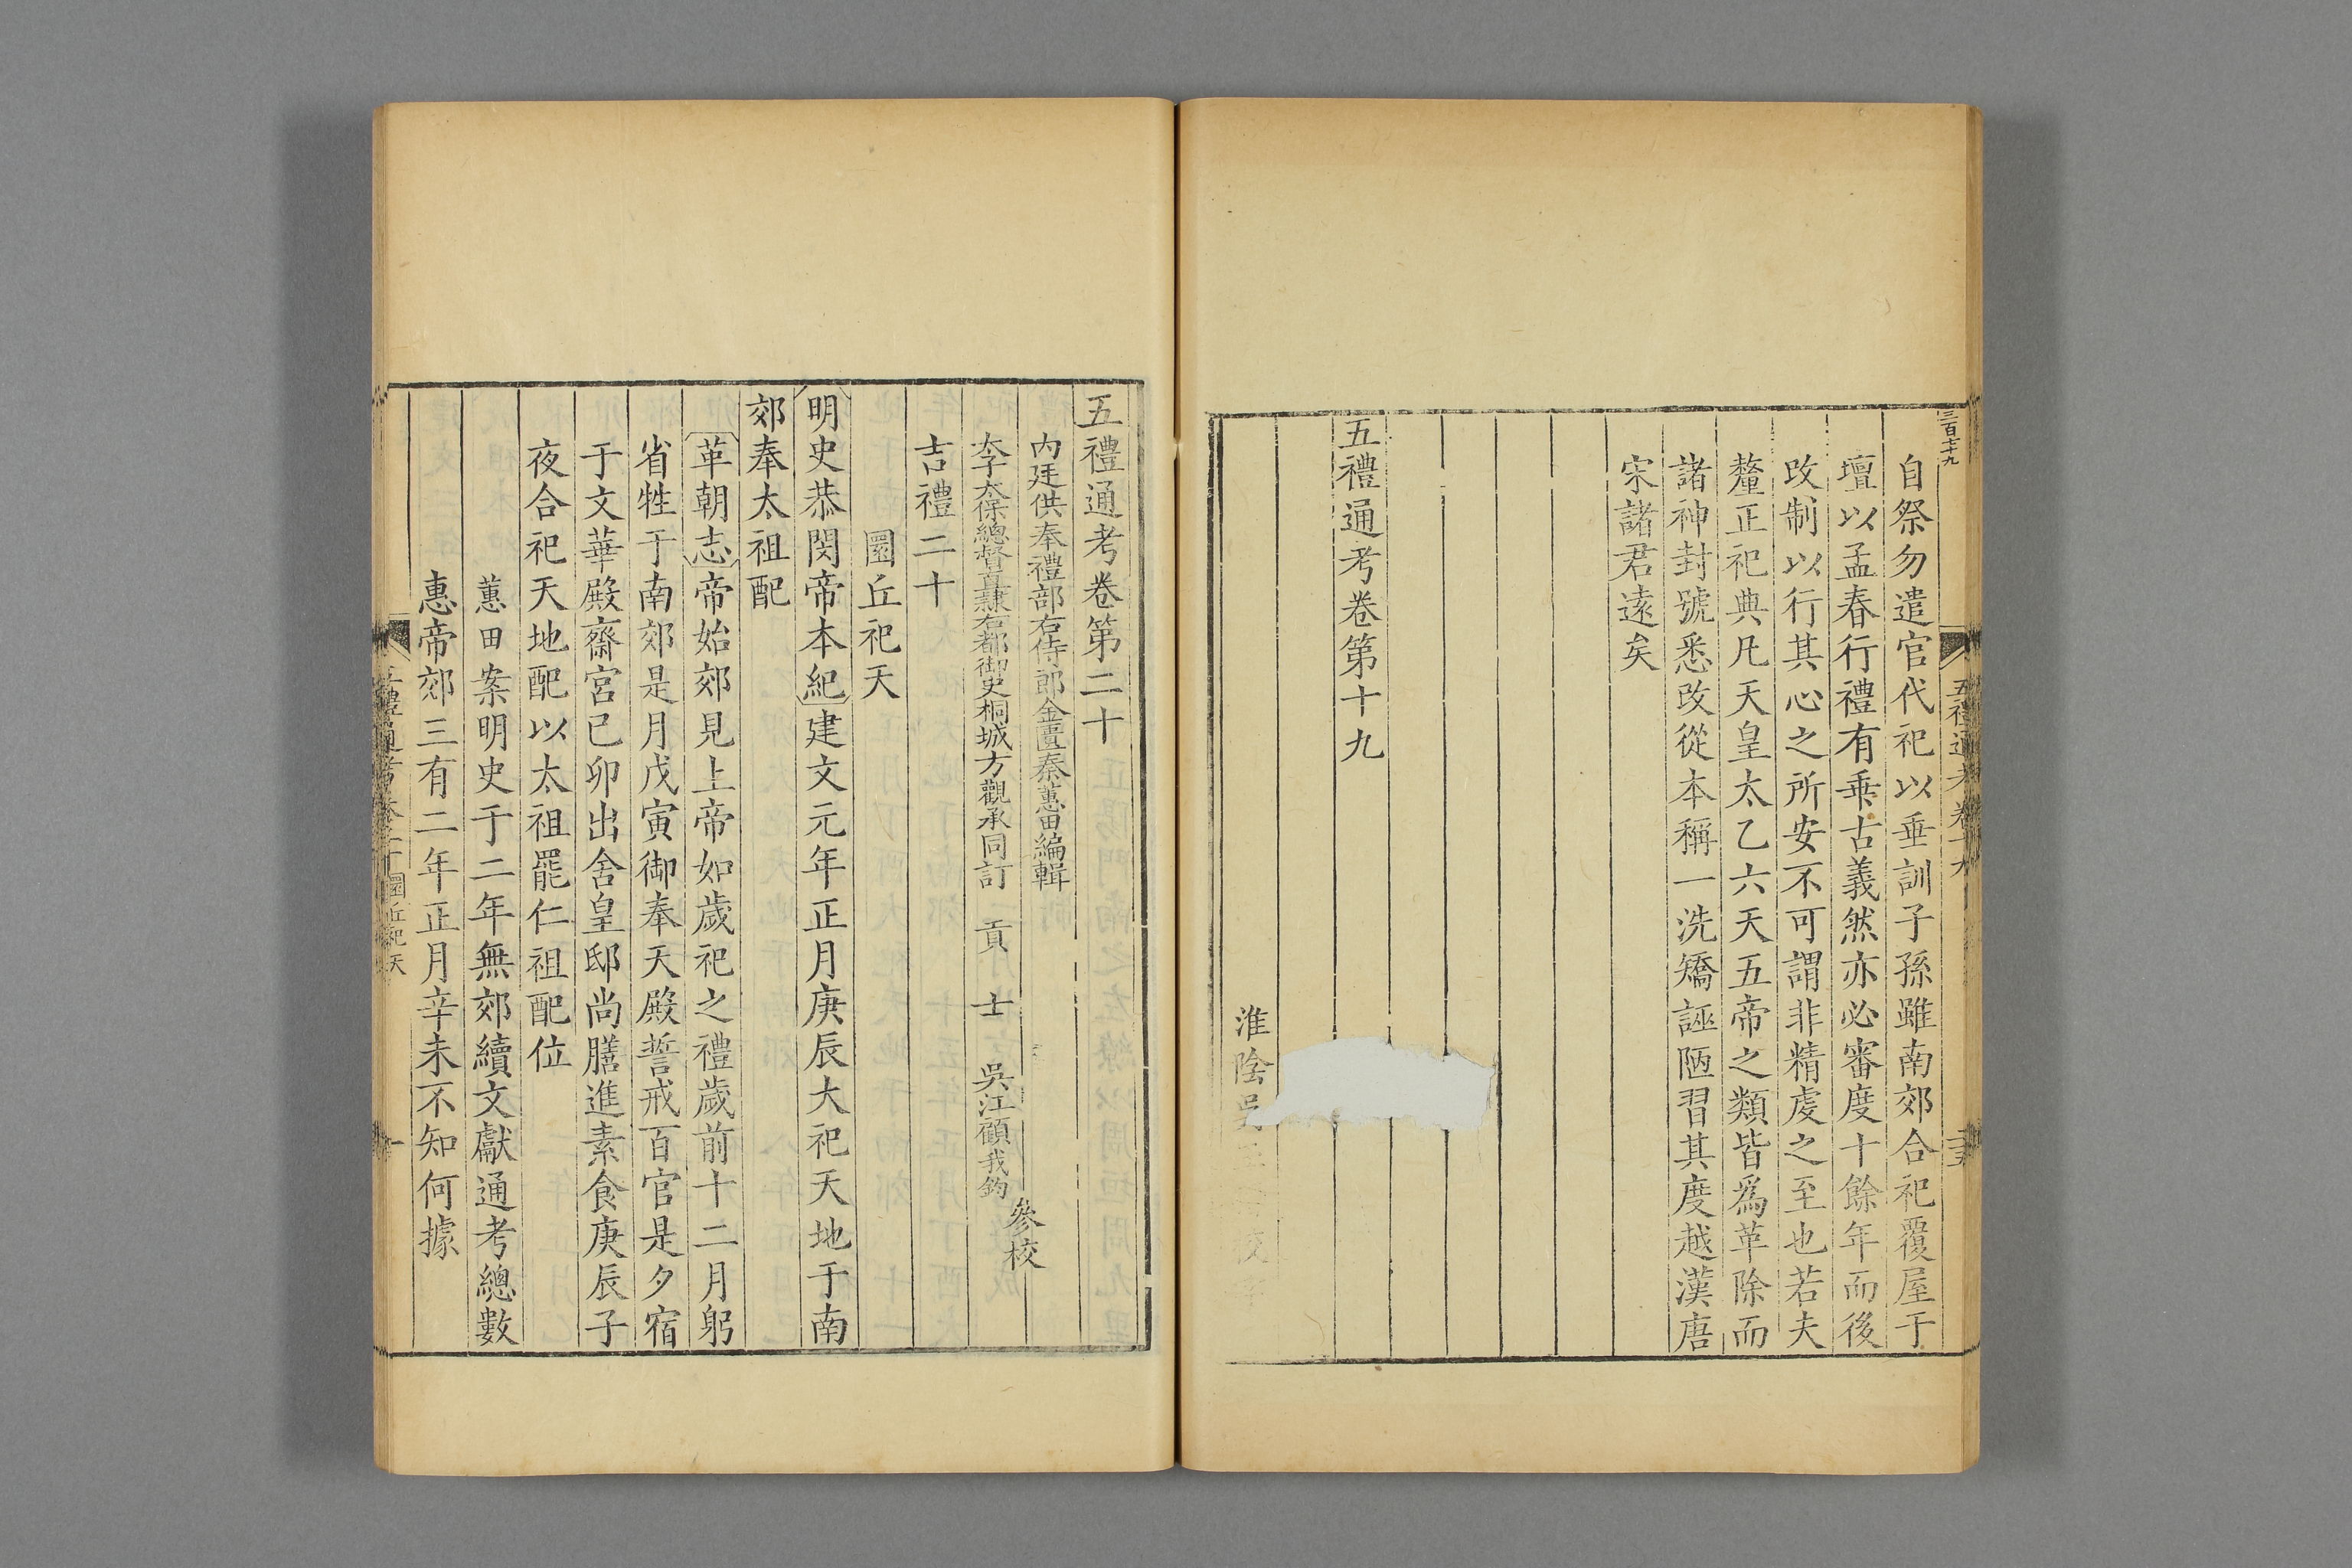 三百十九
五禮通考卷十九
自祭勿遣官代祀以垂訓子孫雖南郊合祀覆屋于
壇以孟春行禮有乗古義然亦必審度十餘年而後
改制以行其心之所安不可謂非精虔之至也若夫
釐正祀典凡天皇太乙六天五帝之類皆爲革除而
諸神封號悉改從本稱一洗矯誣陋習其度越漢唐
宋諸君遠矣
五禮通考卷第十九
淮陰吳
五禮通考卷第二十
内廷供奉禮部右侍郎金匱秦蕙田編輯
太子太保總督直隸右都御史桐城方觀承同訂
貢士吳江顧我鈞
參校
吉禮二十
圜丘祀天
明史恭閔帝本紀建文元年正月庚辰大祀天地于南
郊奉太祖配
革朝志帝始郊見上帝如歲祀之禮歲前十二月躬
省牲于南郊是月戊寅御奉天殿誓戒百官是夕宿
于文華殿齋宮已卯出舍皇邸尚膳進素食庚辰子
夜合祀天地配以太祖罷仁祖配位
蕙田案明史于二年無郊續文獻通考總數
惠帝郊三有二年正月辛未不知何據
五禮通考卷二十 圜丘祀天
一